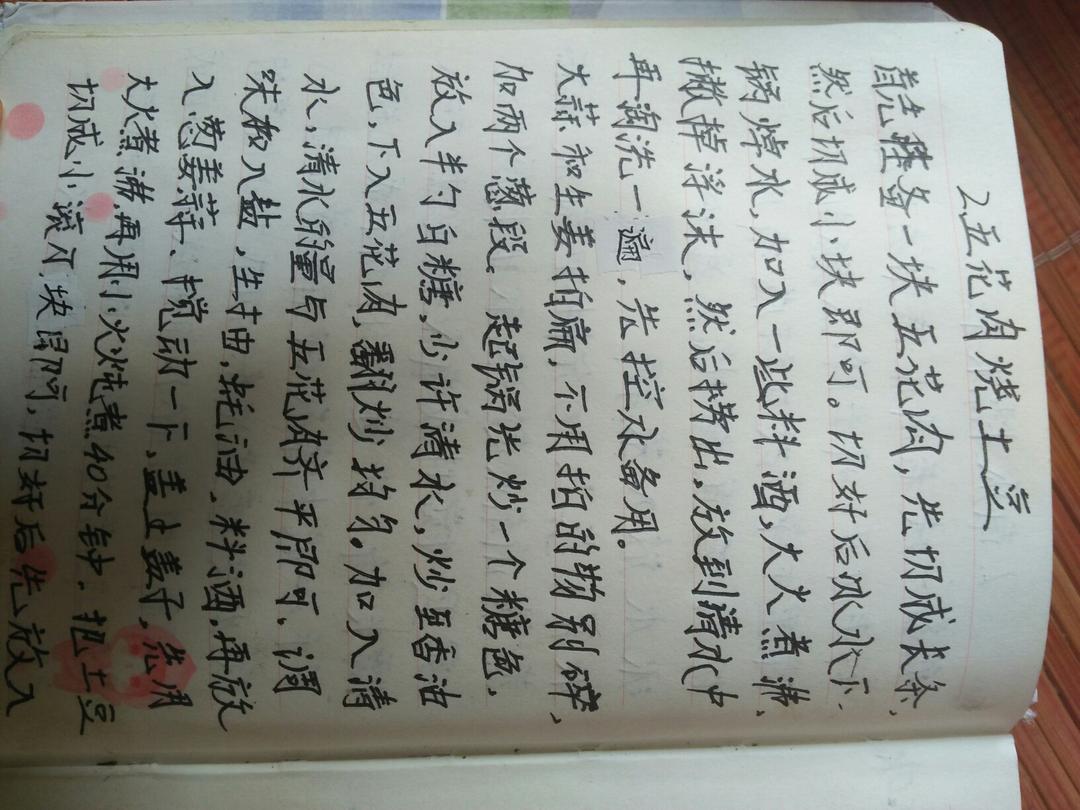 2、五花肉烧土豆
首先准备一块五花肉，先切成长条，
然后切成小块即可。切好后冰水下
锅焯水，加入一些料酒，大火煮沸，
撇掉浮沫，然后捞出，放到清水中
再淘洗一遍，先控水备用。
大蒜和生姜拍扁，不用拍的特别碎，
加两个葱段。起锅先炒一个糖色，
放入半勺白糖，少许清水，炒至香油
色，下入五花肉，翻炒均匀。加入清
水，清水的量与五花肉齐平即可、调
味放入盐，生抽，蚝油、料酒，再放
入葱姜蒜、搅动一下，盖上盖子，先用
大火煮沸，再用小火炖煮40分钟．把土豆
切成小滚刀块即可，切好后先放入